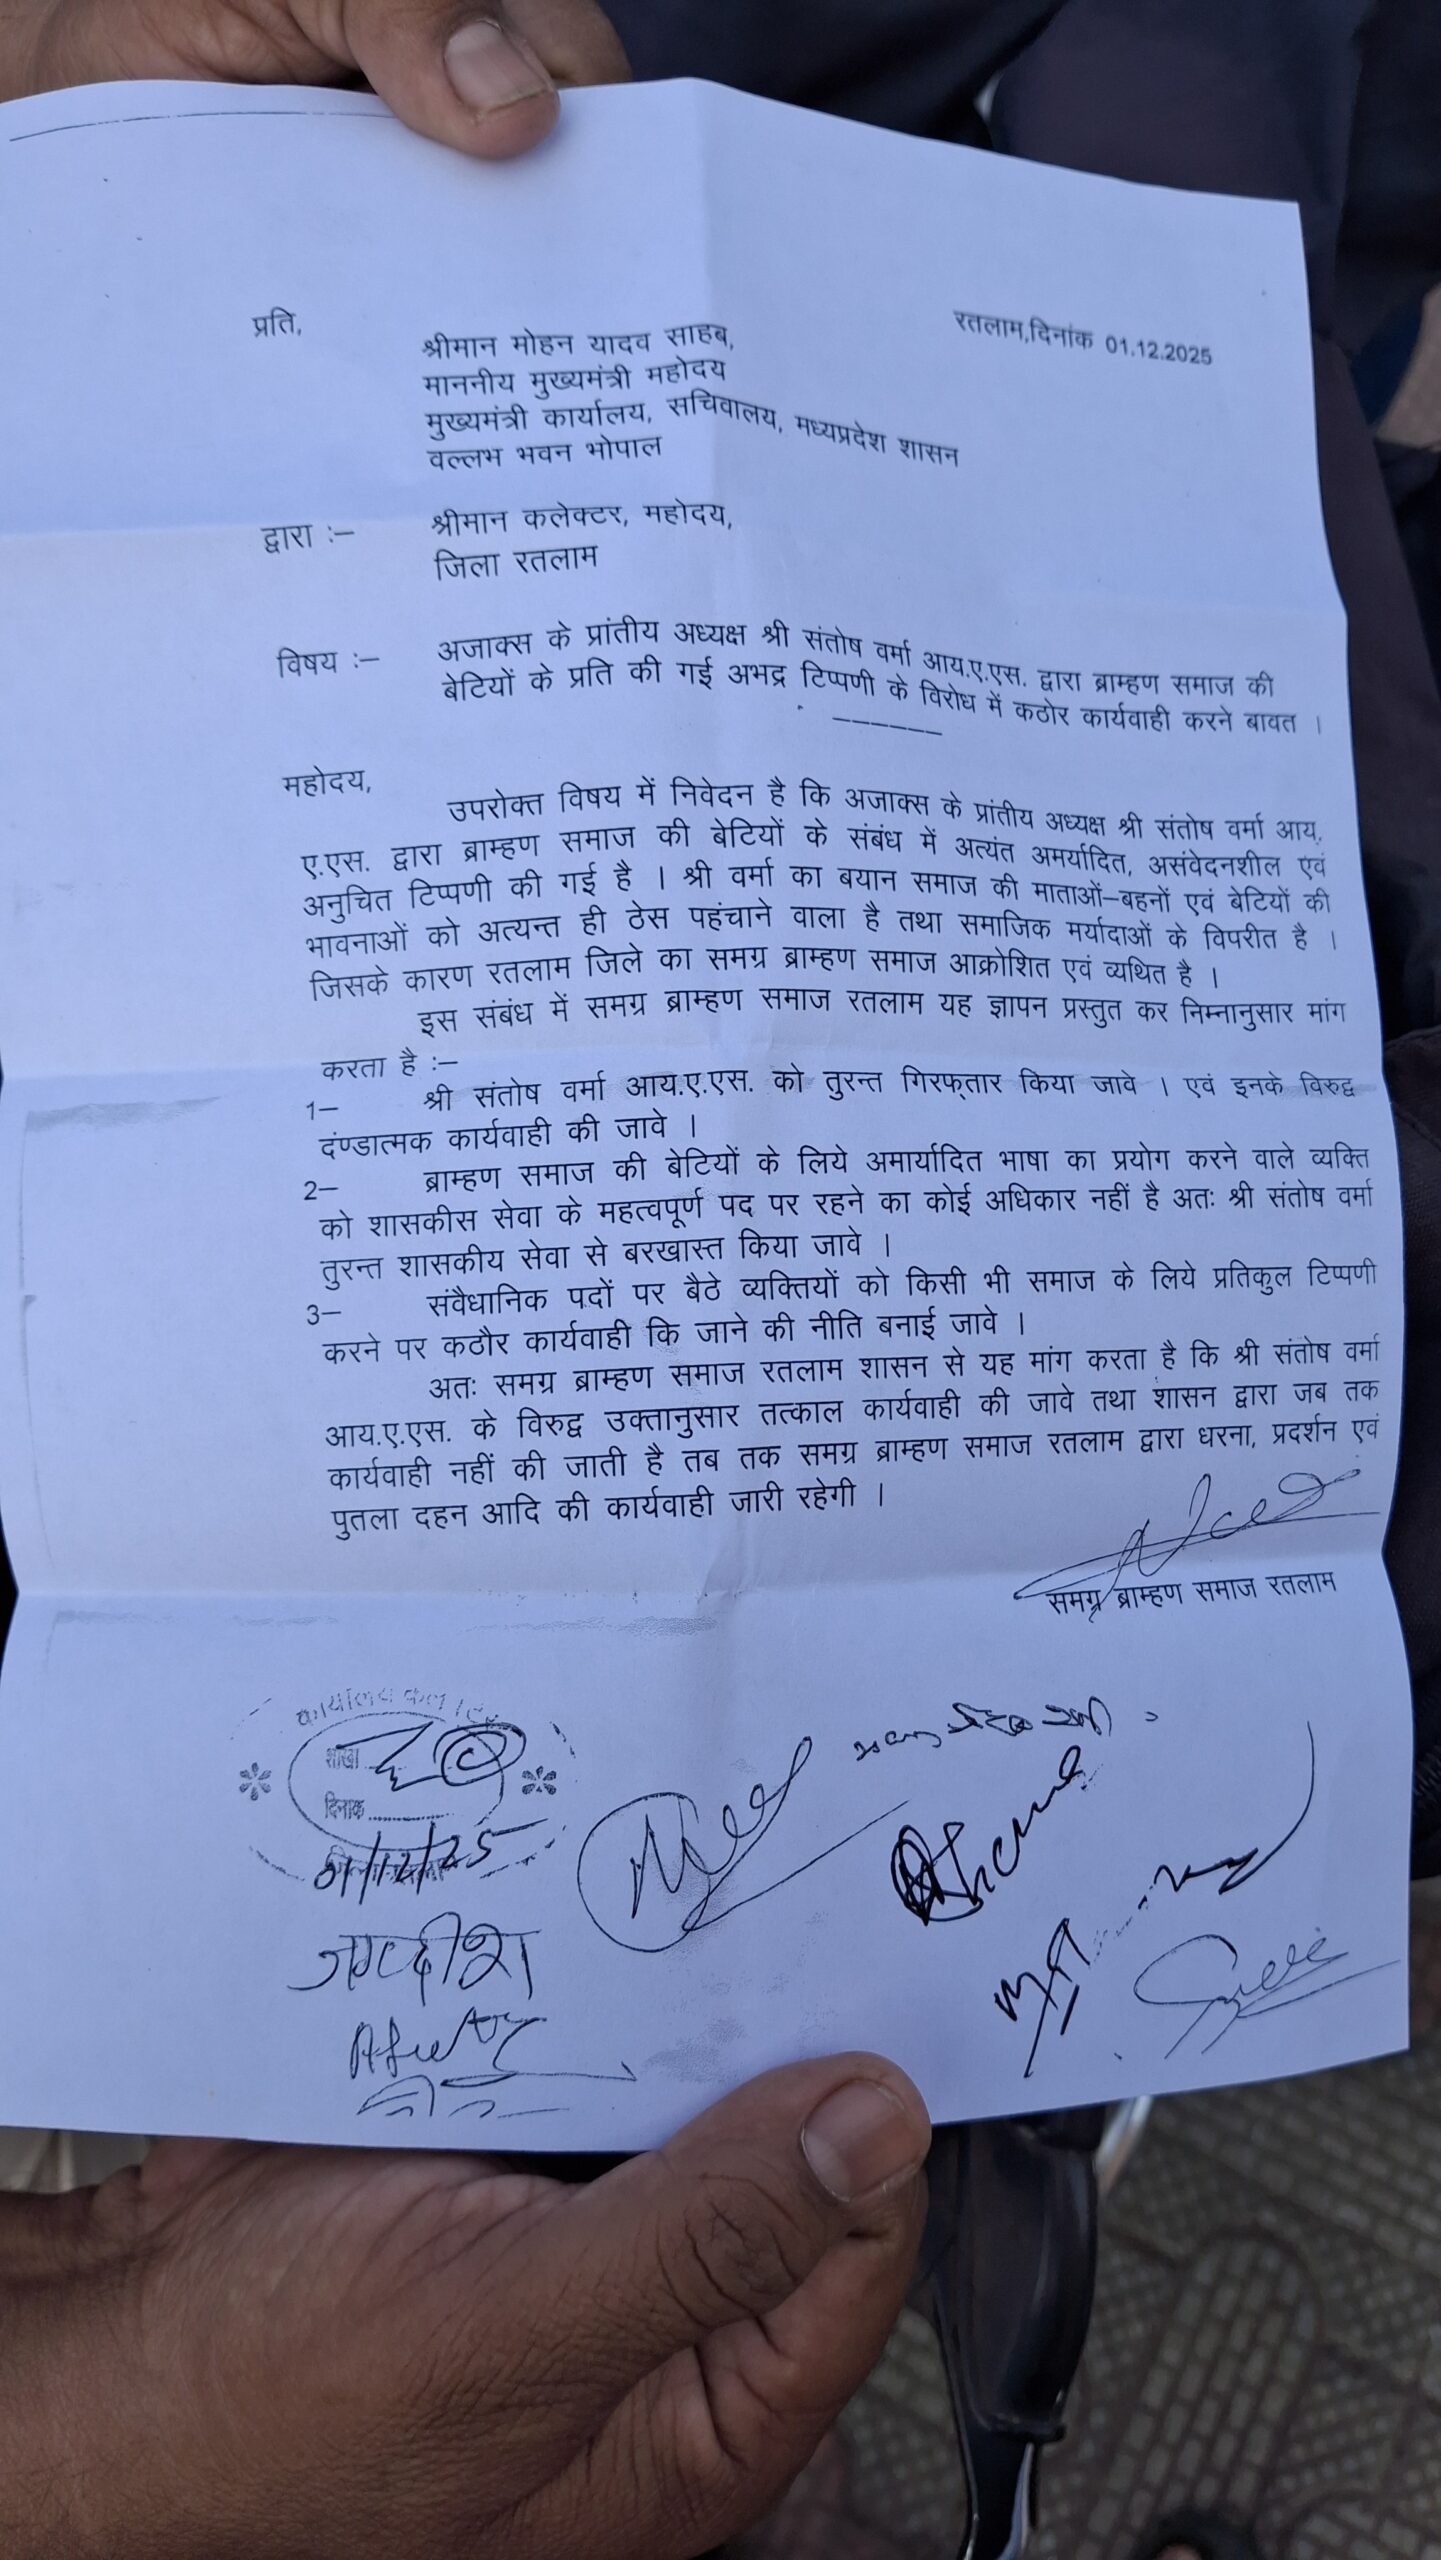 प्रति,
रतलाम,दिनांक 01.12.2025
श्रीमान मोहन यादव साहब,
माननीय मुख्यमंत्री महोदय
मुख्यमंत्री कार्यालय, सचिवालय, मध्यप्रदेश शासन
वल्लभ भवन भोपाल
द्वारा :– श्रीमान कलेक्टर, महोदय,
जिला रतलाम
विषय :– अजाक्स के प्रांतीय अध्यक्ष श्री संतोष वर्मा आय.ए.एस. द्वारा ब्राम्हण समाज की
बेटियों के प्रति की गई अभद्र टिप्पणी के विरोध में कठोर कार्यवाही करने बावत ।
––––––
महोदय,
उपरोक्त विषय में निवेदन है कि अजाक्स के प्रांतीय अध्यक्ष श्री संतोष वर्मा आय.
ए.एस. द्वारा ब्राम्हण समाज की बेटियों के संबंध में अत्यंत अमर्यादित, असंवेदनशील एवं
अनुचित टिप्पणी की गई है । श्री वर्मा का बयान समाज की माताओं–बहनों एवं बेटियों की
भावनाओं को अत्यन्त ही ठेस पहंचाने वाला है तथा समाजिक मर्यादाओं के विपरीत है ।
जिसके कारण रतलाम जिले का समग्र ब्राम्हण समाज आक्रोशित एवं व्यथित है ।
इस संबंध में समग्र ब्राम्हण समाज रतलाम यह ज्ञापन प्रस्तुत कर निम्नानुसार मांग
करता है :–
1– श्री संतोष वर्मा आय.ए.एस. को तुरन्त गिरफ्तार किया जावे । एवं इनके विरुद्व
दंण्डात्मक कार्यवाही की जावे ।
2– ब्राम्हण समाज की बेटियों के लिये अमार्यादित भाषा का प्रयोग करने वाले व्यक्ति
को शासकीस सेवा के महत्वपूर्ण पद पर रहने का कोई अधिकार नहीं है अतः श्री संतोष वर्मा
तुरन्त शासकीय सेवा से बरखास्त किया जावे ।
3– संवैधानिक पदों पर बैठे व्यक्तियों को किसी भी समाज के लिये प्रतिकुल टिप्पणी
करने पर कठौर कार्यवाही कि जाने की नीति बनाई जावे ।
अतः समग्र ब्राम्हण समाज रतलाम शासन से यह मांग करता है कि श्री संतोष वर्मा
आय.ए.एस. के विरुद्व उक्तानुसार तत्काल कार्यवाही की जावे तथा शासन द्वारा जब तक
कार्यवाही नहीं की जाती है तब तक समग्र ब्राम्हण समाज रतलाम द्वारा धरना, प्रदर्शन एवं
पुतला दहन आदि की कार्यवाही जारी रहेगी ।
समग्र ब्राम्हण समाज रतलाम
कार्यालय
शाखा
दिनांक
जगदीश